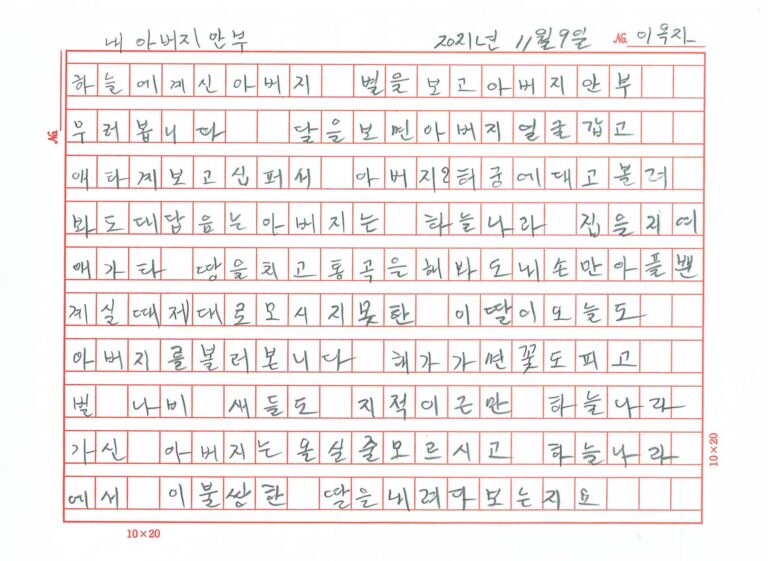 내 아버지 안부 2021년 11월 9일 No. 이옥자
하늘에계신아버지 별을보고아버지안부
무러봅니다 달을보면아버지얼굴갑고
애타게보고십퍼서 아버지요허궁에대고불려
봐도대답음는아버지는 하늘나라 집을지여
애가타 땅을치고통곡을해봐도내손만아플뿐
계실때제대로모시지못한 이딸이오늘도
아버지를불러본니다 해가가면꽃도피고
벌 나비 새들도 지적이근만 하늘나라
가신 아버지는올실줄모르시고 하늘나라
에서 이불쌍한 딸을내려다보는지요
No.
10×20
10×20